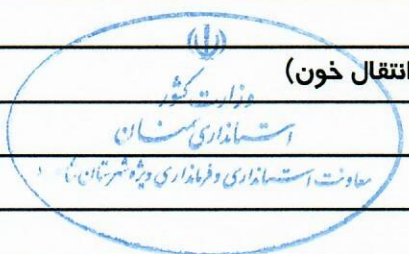 انتقال خون)
وزارت کشور
استانداری سمنان
معاونت استانداری و فرمانداری ویژه شهرستان